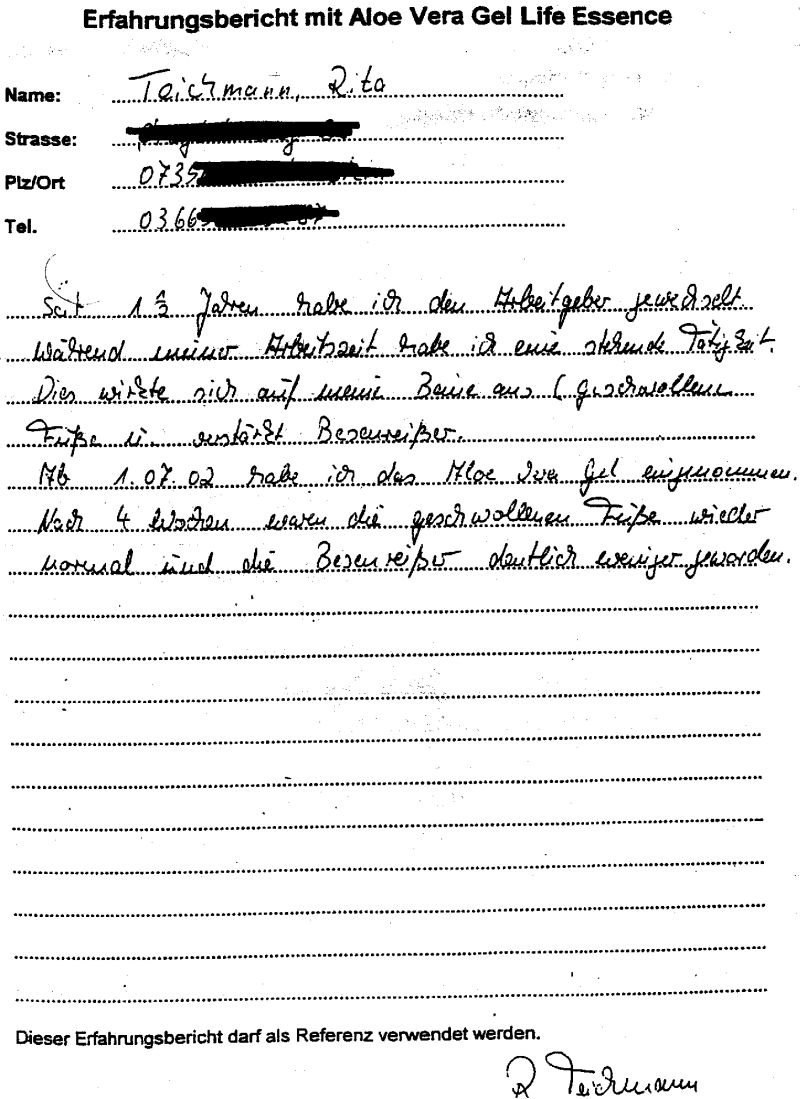 Erfahrungsbericht mit Aloe Vera Gel Life Essence
Name: Teichmann, Rita
Strasse:
Plz/Ort 0735
Tel. 0366
Seit 1 1/2 Jahren habe ich den Arbeitgeber gewechselt.
Während meiner Arbeitszeit habe ich eine stehende Tätigkeit.
Dies wirkte sich auf meine Beine aus (geschwollene
Füße u. verstärkt Besenreißer.
Ab 1.07.02 habe ich das Aloe Vera Gel eingenommen.
Nach 4 Wochen waren die geschwollenen Füße wieder
normal und die Besenreißer deutlich weniger geworden.
Dieser Erfahrungsbericht darf als Referenz verwendet werden.
R Teichmann